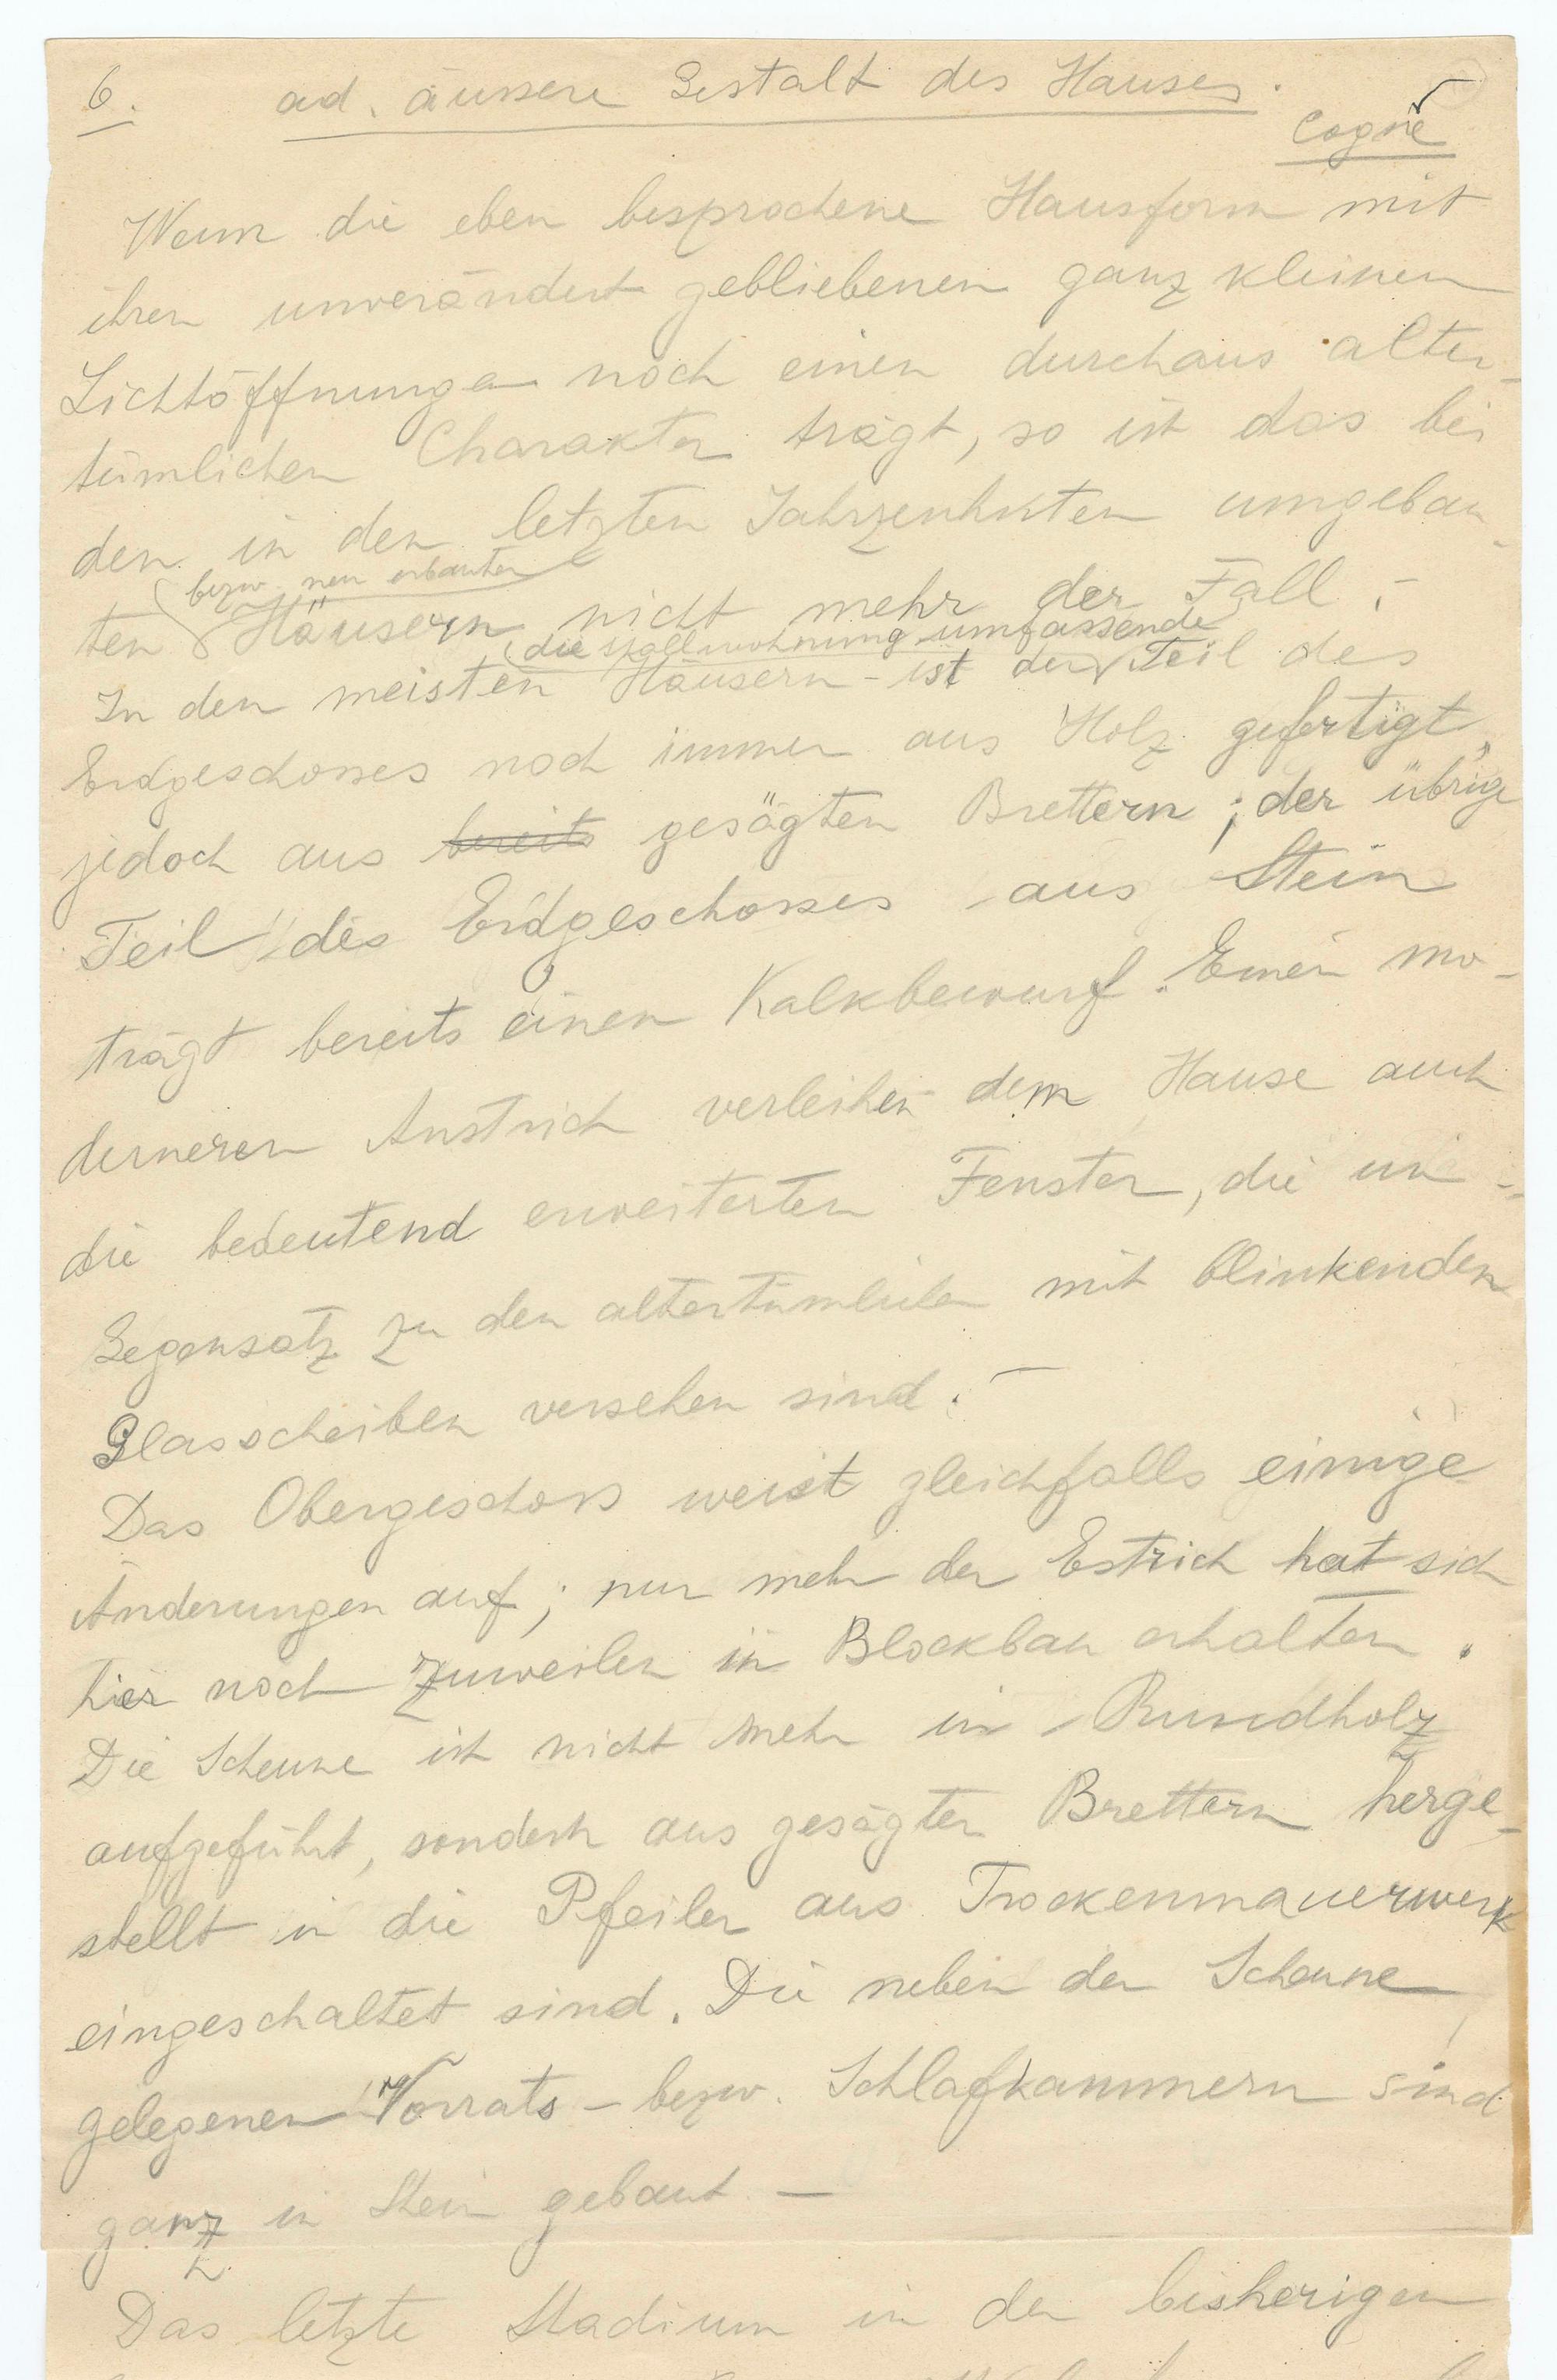 6. ad. äussere Gestalt des Hauses.
Cogne
Wenn die eben besprochene Hausform mit
ihren unverändert gebliebenen ganz kleinen
Lichtöffnungen noch einen durchaus alter-
tümlichen Charakter trägt, so ist das bei
den in den letzten Jahrzenhnten umgebau-
bezw. neu erbauten
ten Häusern nicht mehr der Fall. –
die Stallwohnung umfassende
In den meisten Häusern – ist der Teil des
Erdgeschosses noch immer aus Holz gefertigt,
jedoch aus bereits gesägten Brettern; der übrige
Teil des Erdgeschosses aus Stein
trägt bereits einen Kalkbewurf. Einen mo-
derneren Anstrich verleihen dem Hause auch
die bedeutend erweiterten Fenster, die im
Gegensatz zu den altertümlichen mit blinkenden
Glasscheiben versehen sind. –
Das Obergeschoss weist gleichfalls einige
Änderungen auf; nur mehr der Estrich hat sich
hier noch zuweilen in Blockbau erhalten.
Die Scheune ist nicht mehr in Rundholz
aufgeführt, sondern aus gesägten Brettern herge-
stellt in die Pfeiler aus Trockenmauerwerk
eingeschaltet sind. Die neben der Scheune
gelegenen Vorrats – bezw. Schlafkammern sind
ganz in Stein gebaut –
Das letzte Stadium in der bisherigen